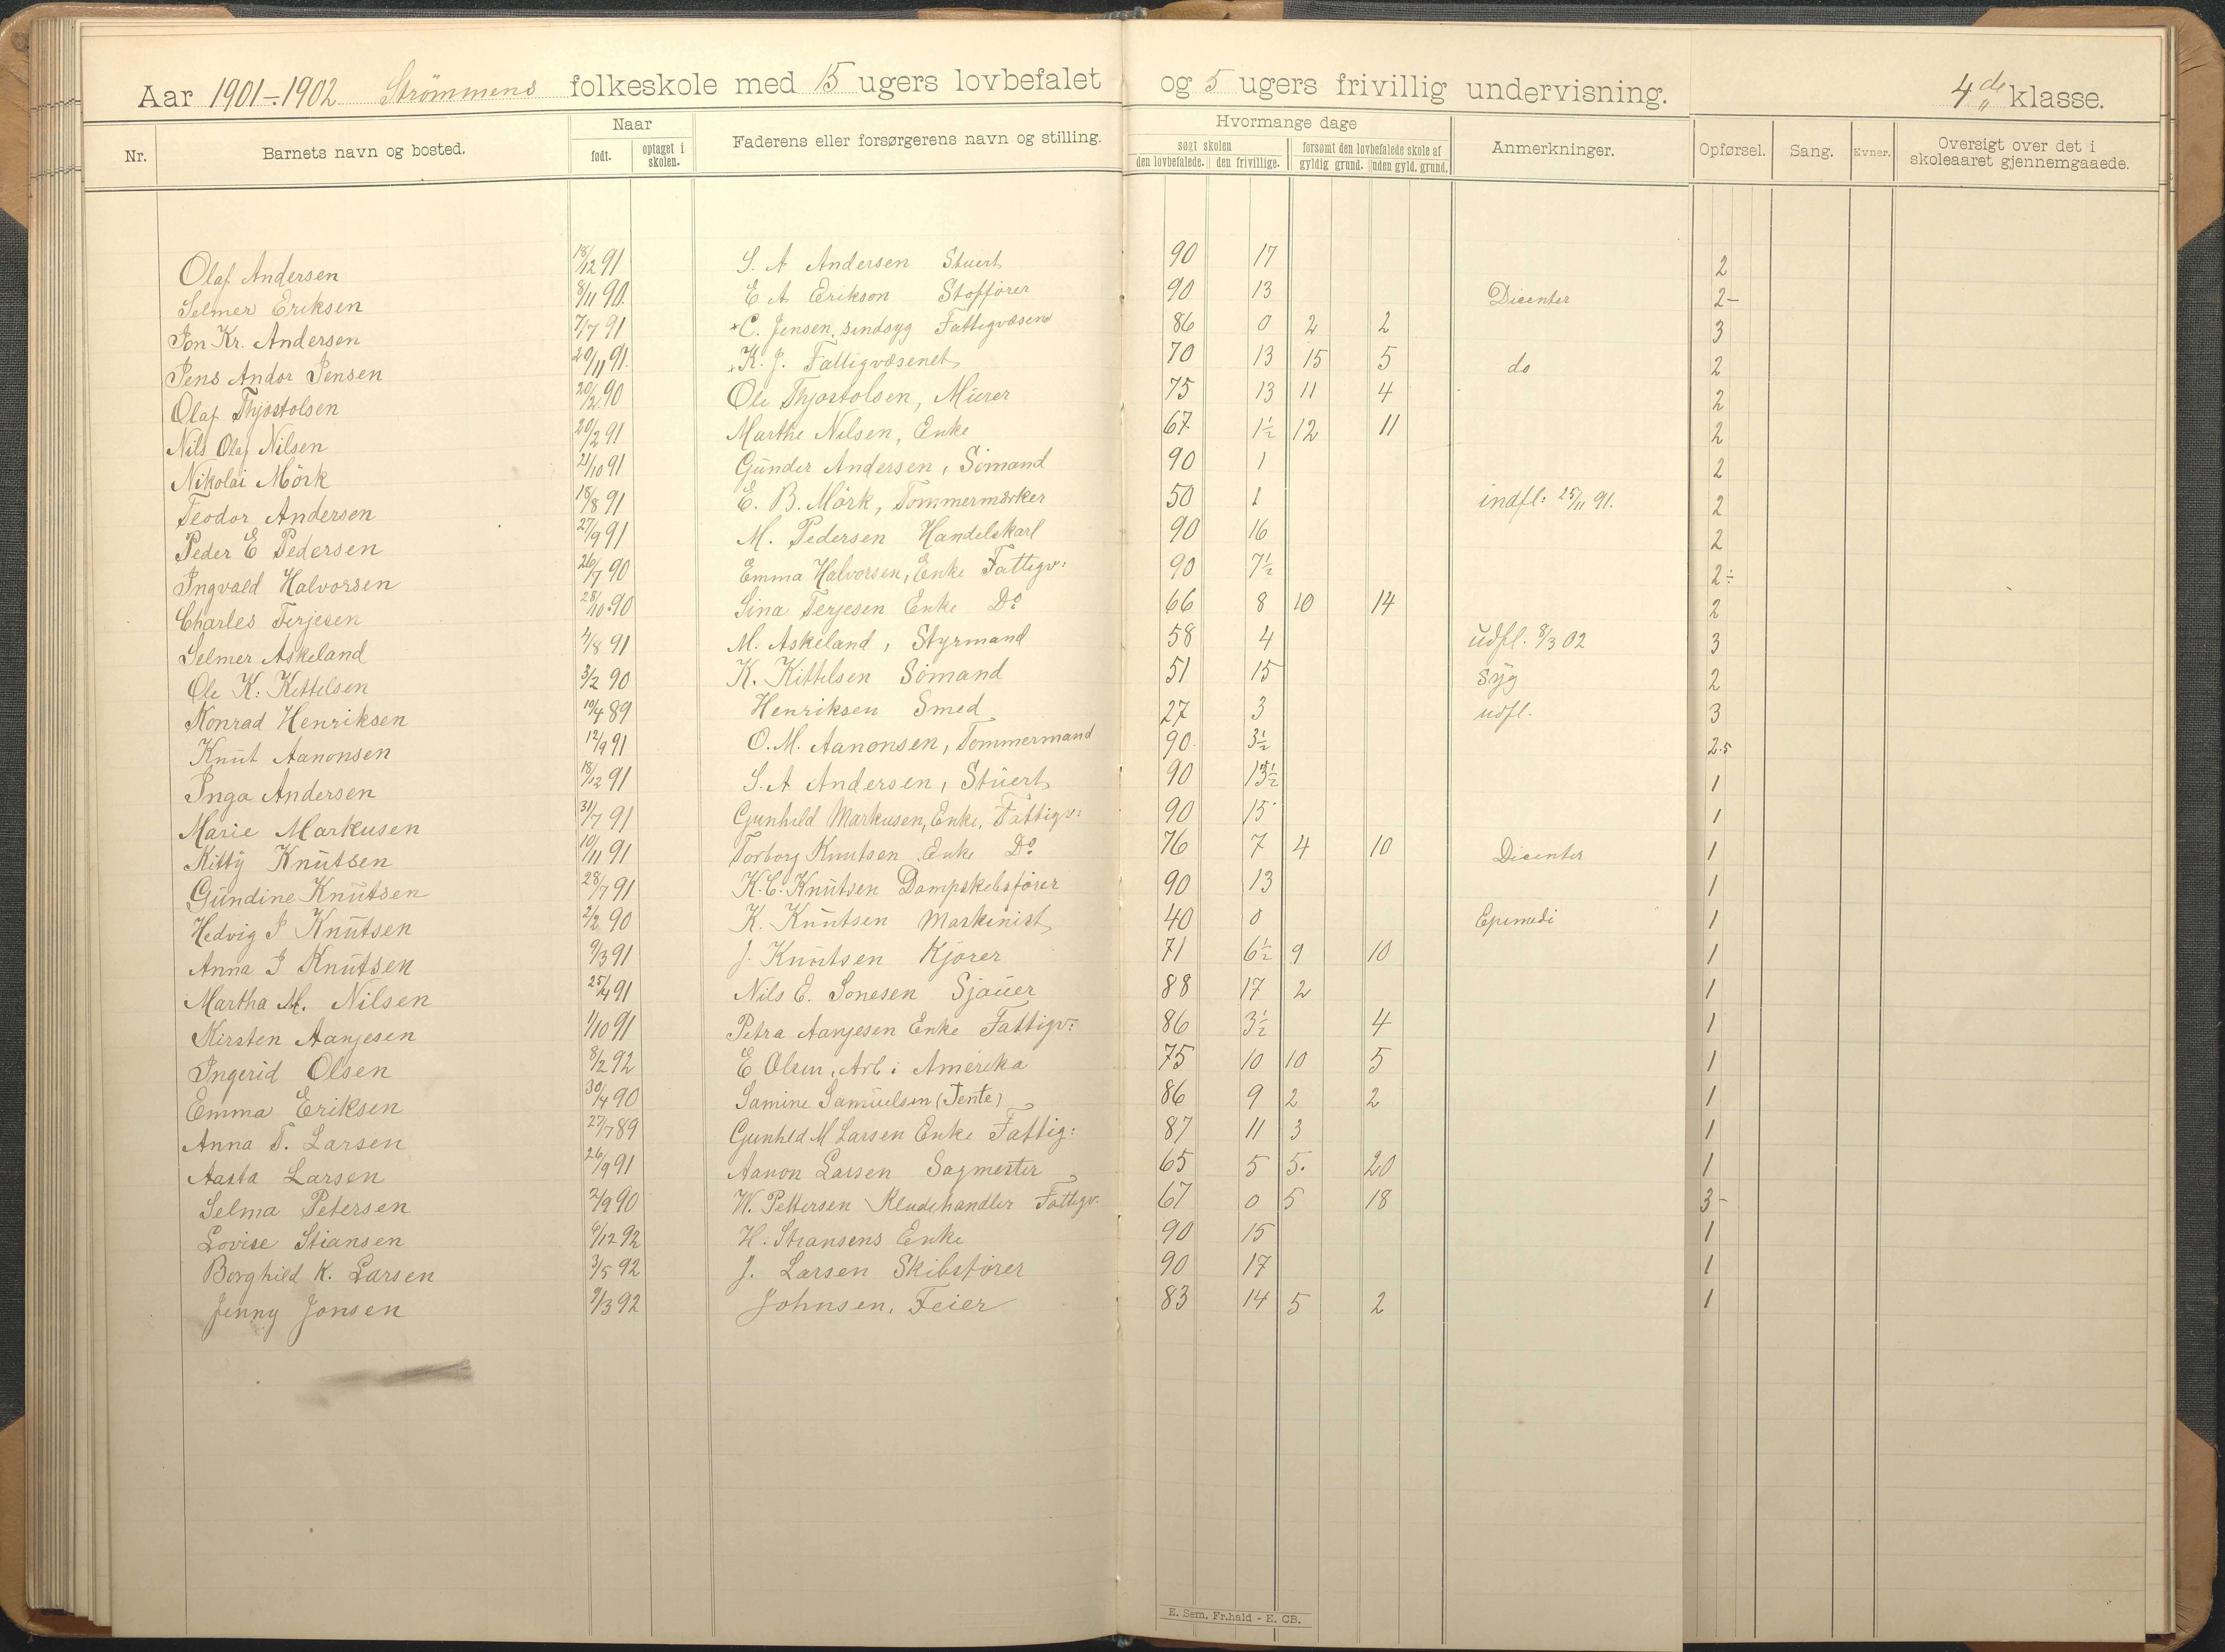 Aar 1901-1902 Strömmens folkeskole med 15 ugers lovbefalet og 5 ugers frivillig undervisning. 4de klasse.
Nr. Barnets navn og bosted. Naar født. optaget i skolen. Faderens eller forsørgerens navn og stilling. Hvormange dage søgt skolen den lovbefalede. den frivillige. forsømt den lovbefalede skole af gyldig grund. uden gyld. grund. Anmerkninger. Opførsel. Sang. Evner. Oversigt over det i skoleaaret gjennemgaaede.
Olaf Andersen 18/12 91 S. A Andersen Stuert 90 17 2
Selmer Eriksen 8/11 90. E A Erikson Stoffører 90 13 Dicenter 2-
Jon Kr. Andersen 7/7 91 C. Jensen, sindsyg Fattigvæsend 86 0 2 2 3
Jens Andor Jensen 20/11 91. K. J. Fattigvæsenet 70 13 15 5 do 2
Olaf Thjostolsen 20/2 90 Ole Thjostolsen, Murer 75 13 11 4 2
Nils Olaf Nilsen 20/2 91 Marthe Nilsen, Enke 67 1½ 12 11 2
Nikolai Mörk 21/10 91 Gunder Andersen, Sömand 90 1 2
Teodor Andersen 18/8 91 E. B. Mörk, Tommermærker 50 1 indfl: 25/11 91. 2
Peder E Pedersen 27/9 91 M. Pedersen Handelskarl 90 16 2
Ingvald Halvorsen 26/7 90 Emma Halvorsen, Enke Fattigv: 90 7½ 2÷
Charles Terjesen 28/10 90 Sina Terjesen Enke Do 66 8 10 14 2
Selmer Askeland 4/8 91 M. Askeland, Styrmand 58 4 udfl. 8/3 02 3
Ole K: Kittelsen 3/2 90 K. Kittelsen Sömand 51 15 syg 2
Konrad Henriksen 10/4 89 Henriksen Smed 27 3 udfl. 3
Knut Aanonsen 12/9 91 O. M. Aanonsen, Tommermand 90 3½ 2.5
Inga Andersen 18/12 91 S. A Andersen, Stuert 90 13½ 1
Marie Markusen 31/7 91 Gunhild Markusen, Enke, Fattigv: 90 15 1
Kitty Knutsen 10/11 91 Torborg Knutsen Enke Do 76 7 4 10 Dicenter 1
Gundine Knutsen 28/7 91 K. C. Knutsen Dampskibsfører 90 13 1
Hedvig J Knutsen 2/2 90 K. Knutsen Maskinist 40 0 Epemedi 1
Anna J Knutsen 9/3 91 J. Knutsen Kjører 71 6½ 9 10 1
Martha M. Nilsen 25/4 91 Nils E. Sonesen Sjauer 88 17 2 1
Kirsten Aanjesen 1/10 91 Petra Aanjesen Enke Fattigv: 86 3½ 4 1
Ingerid Olsen 8/2 92 E Olsen, Arb i Amerika 75 10 10 5 1
Emma Eriksen 30/4 90 Samine Samuelsen (Tente) 86 9 2 2 1
Anna T. Larsen 27/7 89 Gunhild M Larsen Enke Fattig: 87 11 3 1
Aasta Larsen 26/9 91 Aanon Larsen Sagmester 65 5 5. 20 1
Selma Petersen 2/9 90 W. Pettersen Kludehandler Fattigv. 67 0 5 18 3-
Lovise Stiansen 6/12 92 H. Stiansens Enke 90 15 1
Borghild K. Larsen 3/5 92 J. Larsen Skibsfører 90 17 1
Jenny Jonsen 9/3 92 Johnsen, Feier 83 14 5 2 1
E. Sem, Fr.hald - E. CB.